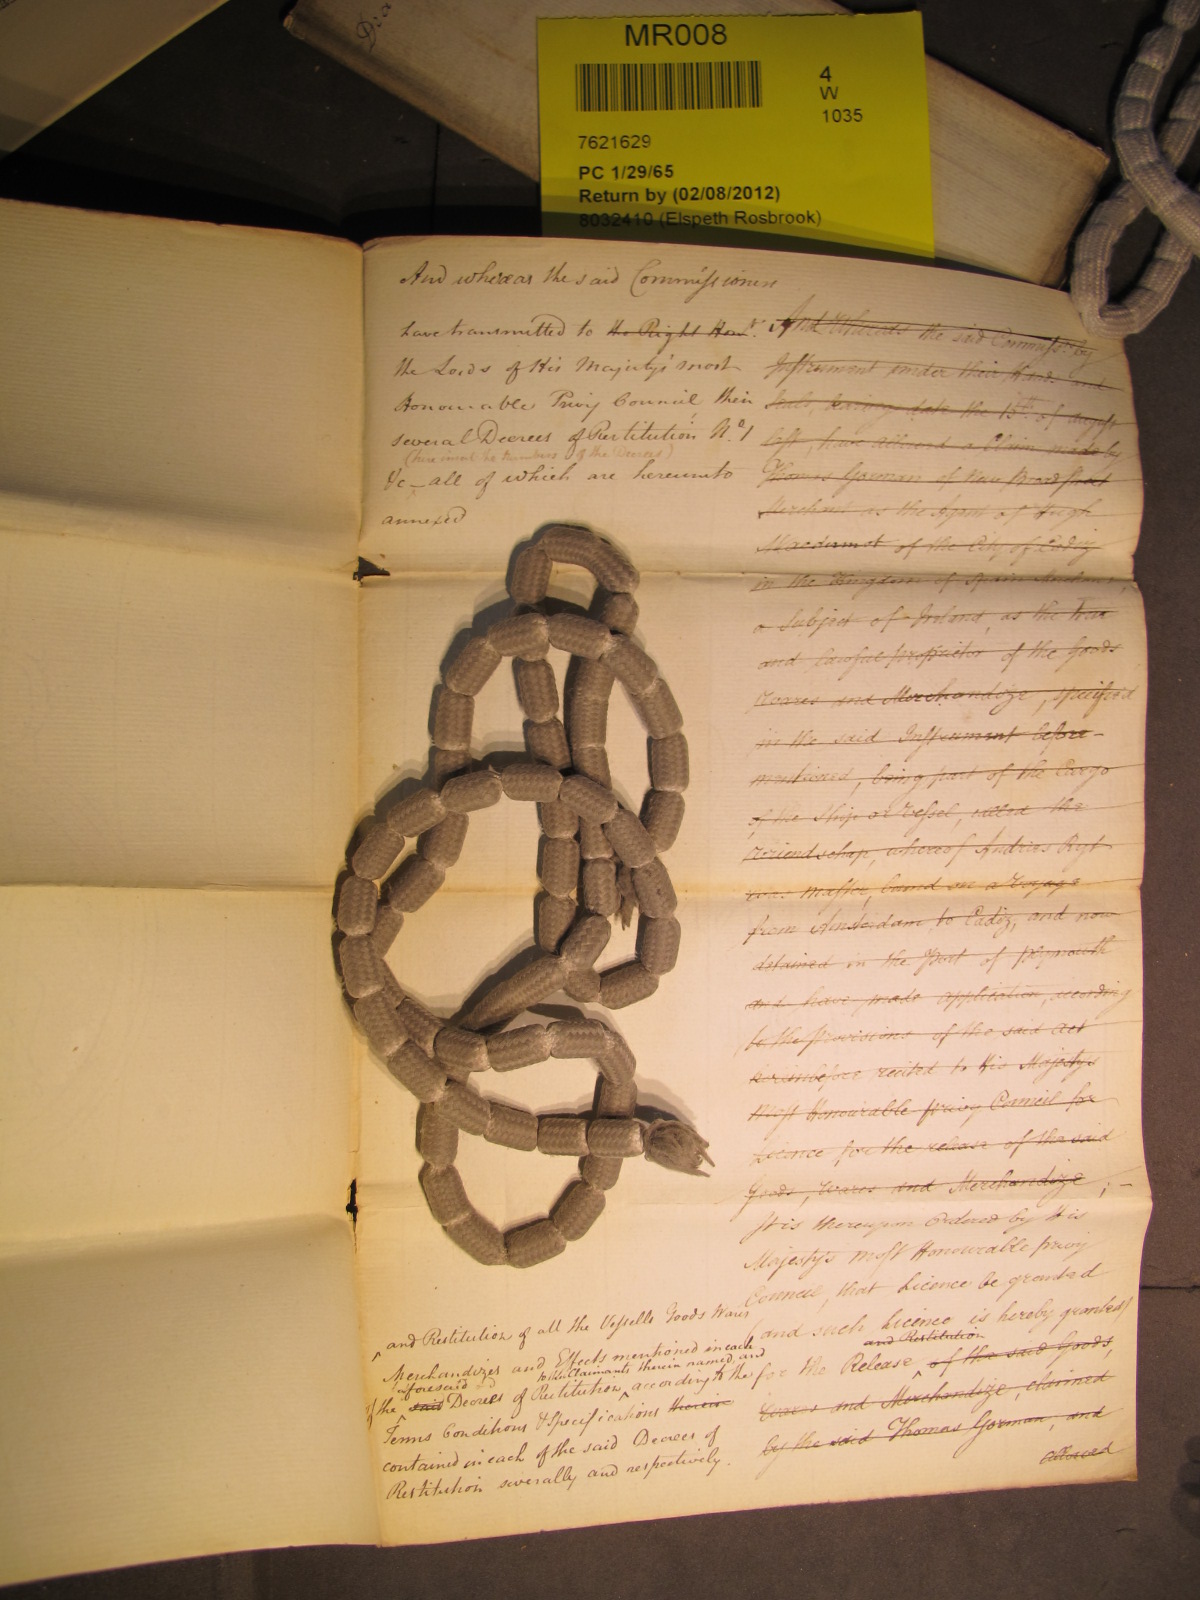 Dia
MR008
4
W
1035
7621629
PC 1/29/65
Return by (02/08/2012)
8032410 (Elspeth Rosbrook)
And whereas the said Commissioners
have transmitted to the Right Honble.
the Lords of His Majesty's most
Honourable Privy Council their
several Decrees of Restitution No. 1
(here insert the Numbers of the Decrees)
&c all of which are hereunto
annexed
And Whereas the said Commissrs. by
Instrument under their Hands and
Seals, bearing date the 15th of August
last, have allowed a Claim made by
Thomas Gorman of New Broad Street
Merchant as the Agent of Hugh
Macdermot of the City of Cadiz
in the Kingdom of Spain
a Subject of Ireland, as the true
and lawful proprietor of the Goods
Wares and Merchandize, specified
in the said Instrument before-
mentioned, being part of the Cargo
of the Ship or Vessel, called the
Vriendschap, whereof Andries Ryt
was Master, bound on a Voyage
from Amsterdam to Cadiz, and now
detained in the Port of Plymouth
and have made application, according
to the provisions of the said Act
hereinbefore recited to His Majestys
most Honourable privy Council for
Licence for the release of the said
Goods, Wares and Merchandize ; -
It is thereupon Ordered by His
Majesty's most Honourable privy
Council, that Licence be granted
(and such Licence is hereby granted)
and Restitution
for the Release of the said Goods,
Wares and Merchandize, claimed
by the said Thomas Gorman, and
allowed
and Restitution of all the Vessells Goods Wares
Merchandizes and Effects mentioned in each
aforesaid to the Claimants therein named, and
of the said Decrees of Restitution, according to the
Terms Conditions & Specifications therein
contained in each of the said Decrees of
Restitution severally and respectively.